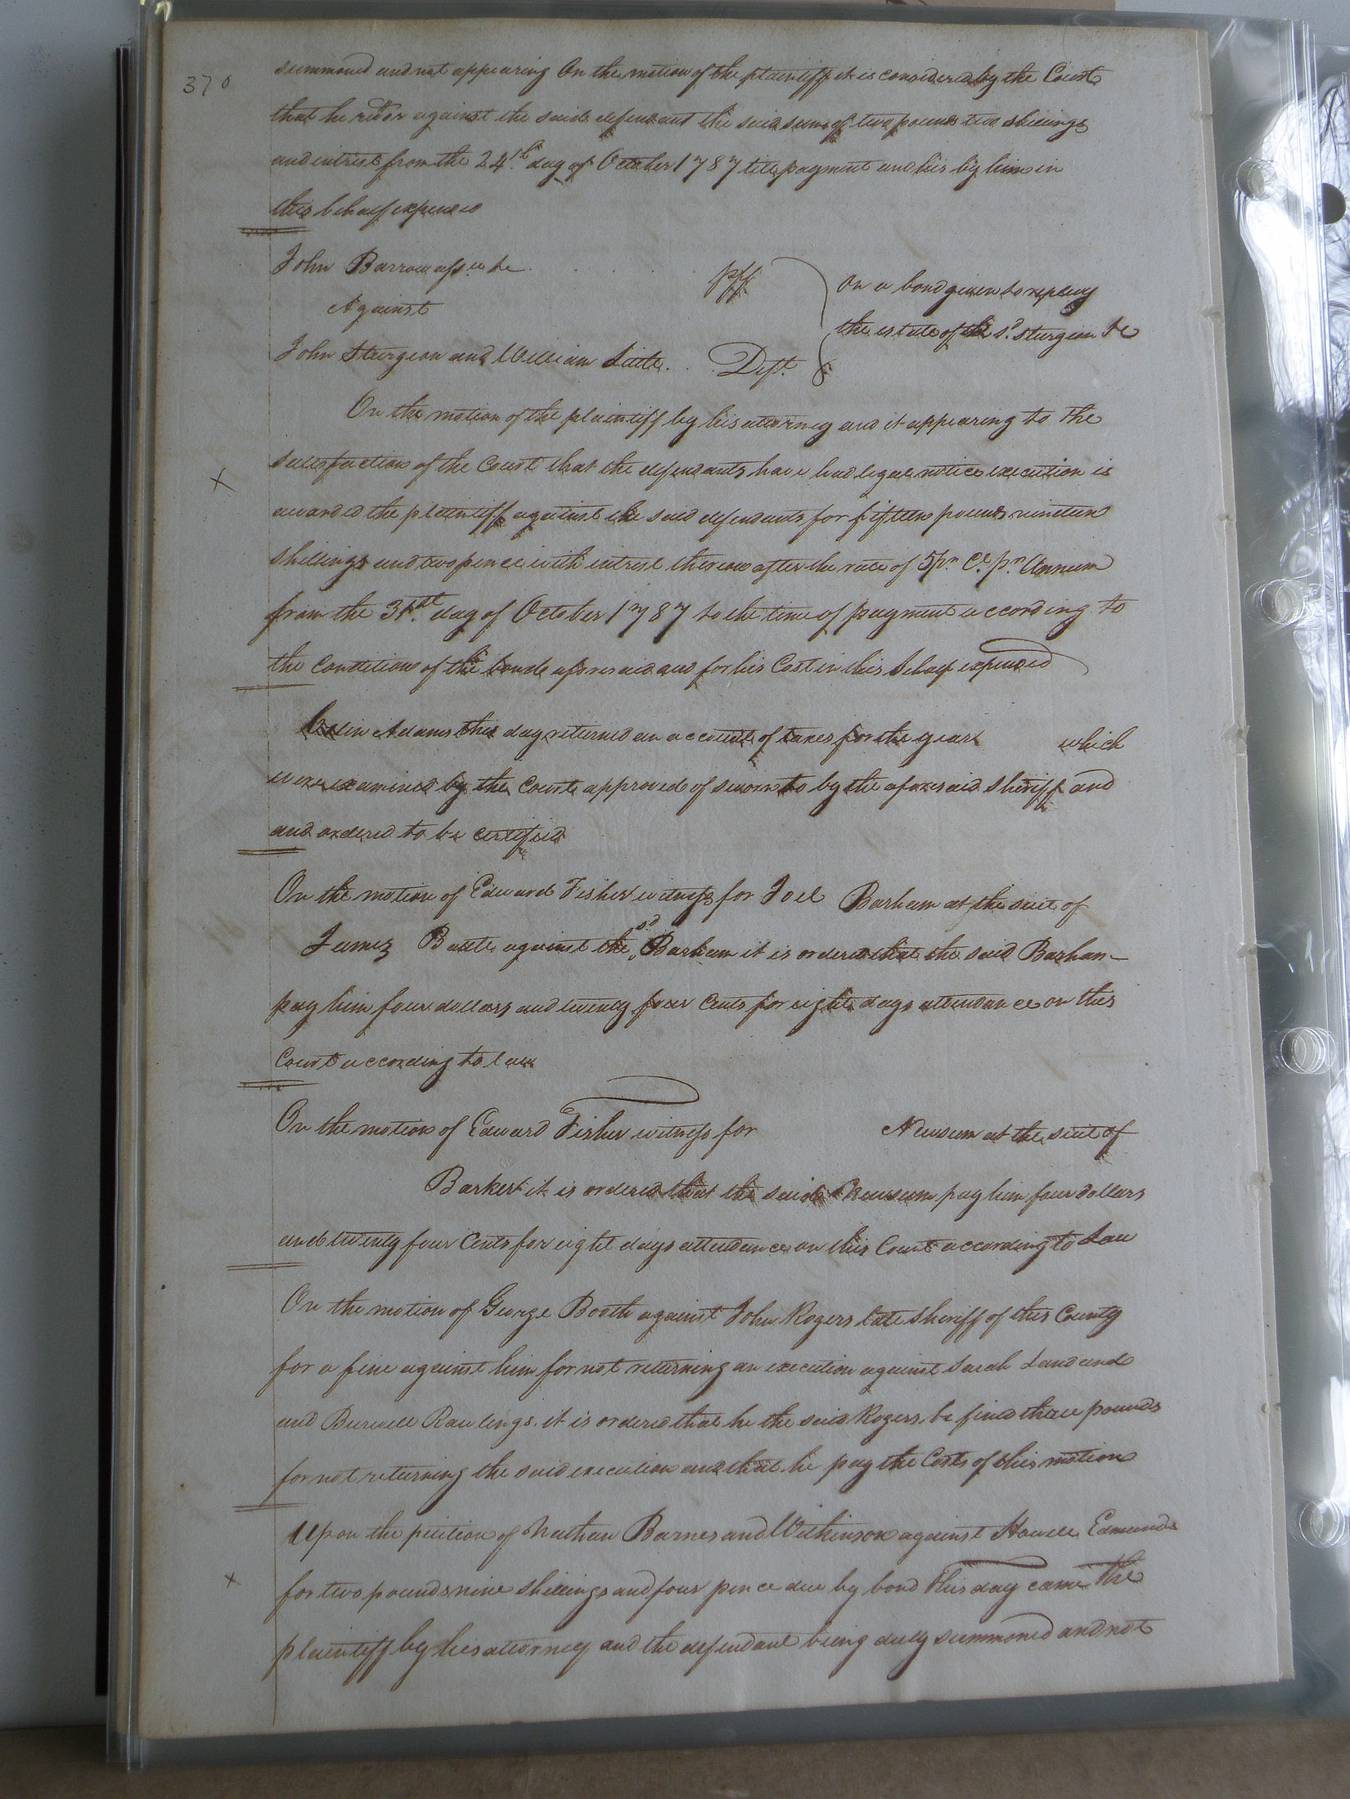 370
summoned and not appearing On the motion of the plaintiff it is considered by the Court
that he recor against the said defendant the said sum of two pounds two shillings
and intrist from the 24th day of October 1787 till payment and his by him in
this behalf expended
John Barrow assee &c
Pltf
On a bond given to replevy
Against
the estate of the sd. Sturgeon &c
John Sturgeon and William Little
Deft.
On the motion of the plaintiff by his attorney and it appearing to the
satisfaction of the Court that the defendants have had legal notice execution is
awarded the plaintiff against the said defendants for fifteen pounds nineteen
shillings and two pence with intrest thereon after the rate of 5 pr. Ct. pr. Annum
from the 31st. day of October 1787 to the time of payment according to
the Condition of the bond aforesaid and for his Cost in this behalf expended
Adams this day returned an account of taxes for the years which
were examined by the Court approved of sworn to by the aforesaid Sheriff and
and ordered to be certified
On the motion of Edward Fisher witness for Joel Barham at the suit of
James Battle against the sd. Barham it is ordered that the said Barham
pay him four dollars and twenty four Cents for eight days attendance on this
Court according to law
On the motion of Edward Fisher witness for Newsum at the suit of
Barker it is ordered that the said Newsum pay him four dollars
and twenty four Cents for eight days attendance on this Court according to Law
On the motion of George Booth against John Rogers late Sheriff of this County
for a fine against him for not returning an execution against Sarah Land and
and Burwell Rawlings. it is ordered that he the said Rogers be fined three pounds
for not returning the said execution and that he pay the Costs of this motion
Upon the petition of Nathan Barnes and Wilkinson against Howell Edmunds
for two pounds nine shillings and four pence due by bond This day came the
plaintiff by his attorney and the defendant being duly summoned and not